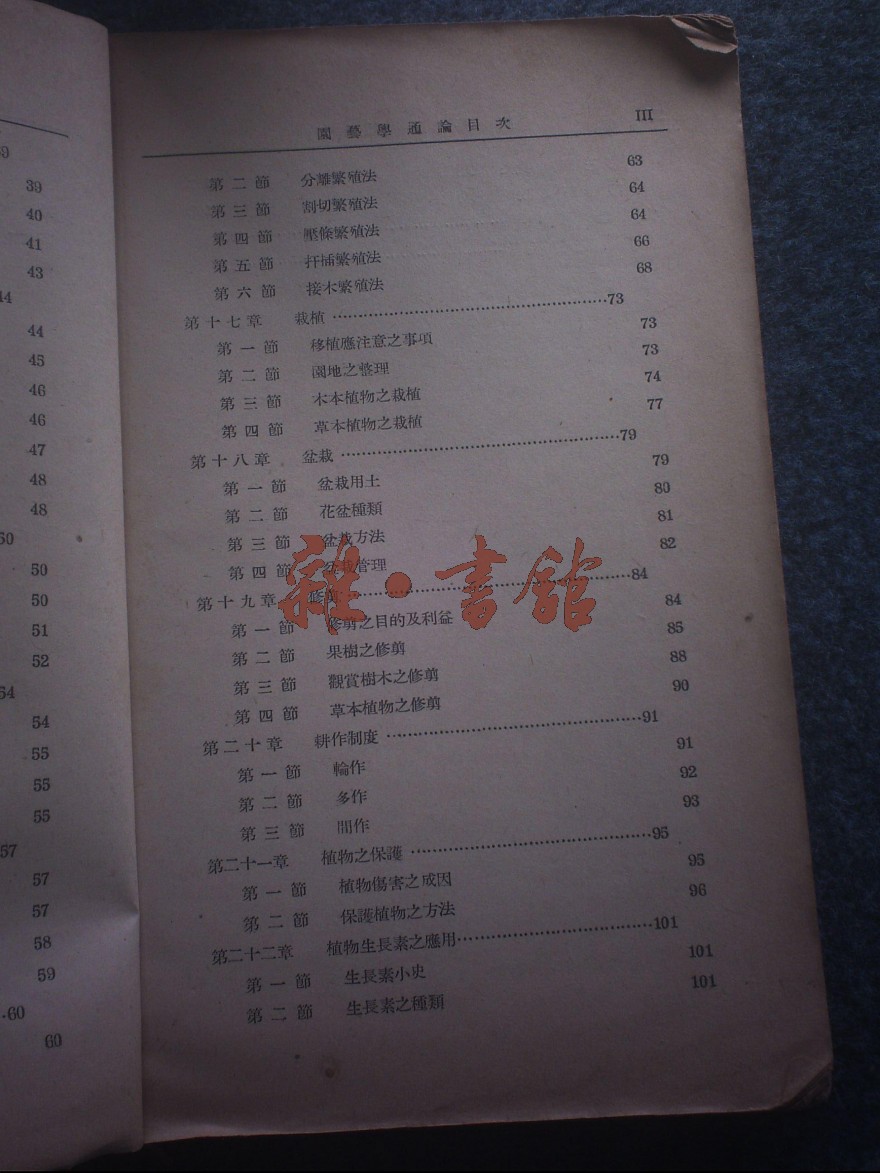 39
39
40
41
43
44
44
45
46
46
47
48
48
50
50
50
51
52
54
54
55
55
55
57
57
57
58
59
60
60
園藝學通論目次 III
第二節 分離繁殖法 63
第三節 割切繁殖法 64
第四節 壓條繁殖法 64
第五節 扦插繁殖法 66
第六節 接木繁殖法 68
第十七章 栽植 73
第一節 移植應注意之事項 73
第二節 園地之整理 73
第三節 木本植物之栽植 74
第四節 草本植物之栽植 77
第十八章 盆栽 79
第一節 盆栽用土 79
第二節 花盆種類 80
第三節 盆栽方法 81
第四節 盆栽管理 82
第十九章 修剪 84
第一節 修剪之目的及利益 84
第二節 果樹之修剪 85
第三節 觀賞樹木之修剪 88
第四節 草本植物之修剪 90
第二十章 耕作制度 91
第一節 輪作 91
第二節 多作 92
第三節 間作 93
第二十一章 植物之保護 95
第一節 植物傷害之成因 95
第二節 保護植物之方法 96
第二十二章 植物生長素之應用 101
第一節 生長素小史 101
第二節 生長素之種類 101
雜·書館